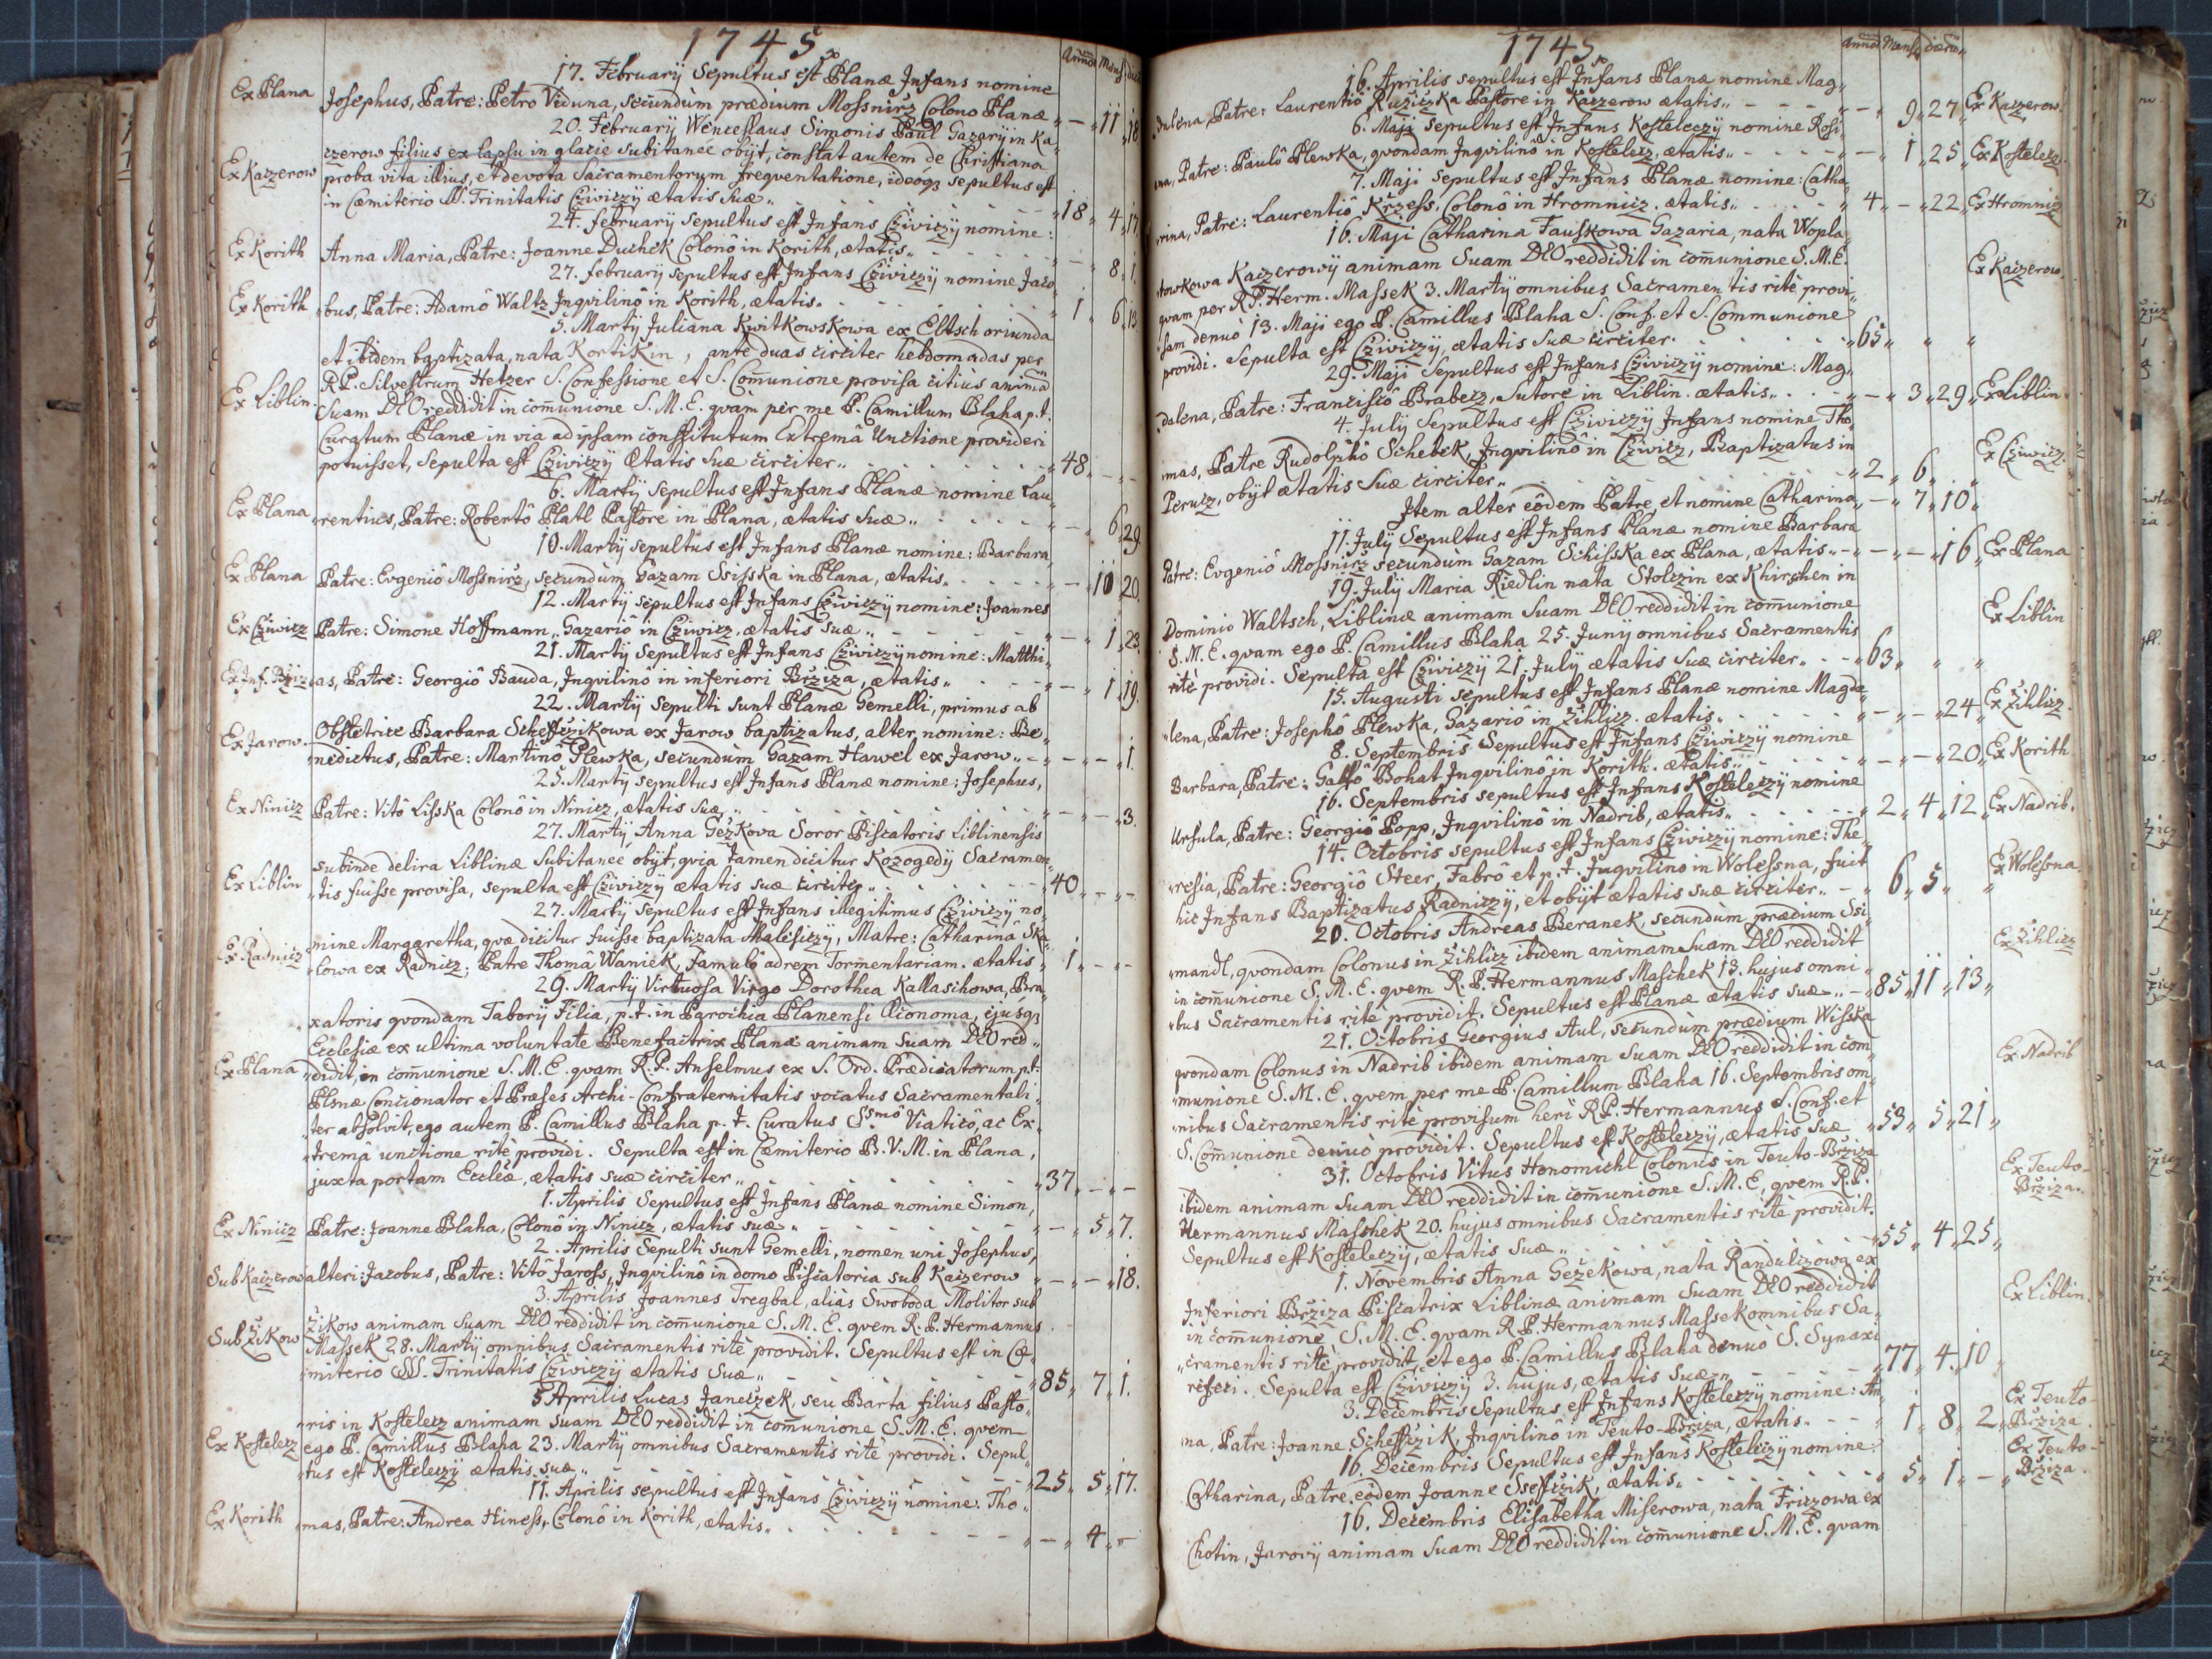 1745
Annor. Mens. dier.
17. Februarij Sepultus est Planæ Infans nomine
Ex Plana Josephus, Patre: Petro Viduna, secundùm prædium Mossnirz Colono Planæ „ — „ 11 „ 18
20. Februarij Wenceslaus Simonis Paul Gazarij in Ka„
czerow filius ex lapsu in glacie subitanee obijt, constat autem de Christiana
Ex Kaczerow proba vita illius, et devota Sacramentorum freqventatione, ideóq3 sepultus est
in Cæmiterio SS. Trinitatis Cziviczij ætatis suæ „ 18 „ 4 „ 17
24. februarij Sepultus est Infans Cziviczij nomine:
Ex Korith Anna Maria, Patre: Joanne Duchek Colonô in Korith, ætatis „ — „ 8 „ 1.
27. februarij Sepultus est Infans Cziviczij nomine Jaco„
Ex Korith „bus, Patre: Adamô Waltz Inqvilinô in Korith, ætatis. 1 „ 6 „ 13
5. Martij Juliana Kwitkowskowa ex Eltsch oriunda
et ibidem baptizata, nata Kortikin, ante duas circiter hebdomadas per
R.P. Silvestrum Hetzer S. Confessione et S. Comunione provisa citiùs animã
Ex Liblin. Suam DEO reddidit in comunione S.M.E. qvàm per me P. Camillum Blaha p.t.
Curatum Planæ in via ad ipsam constitutum Extremâ Unctione provideri
potuisset, sepulta est Cziviczij Ætatis suæ circiter „ 48 „ — „ —
6. Martij Sepultus est Infans Planæ nomine Lau„
Ex Plana „rentius, Patre: Robertô Platl Pastore in Plana, ætatis suæ „ — „ 6 „ 29
10. Martij sepultus est Infans Planæ nomine: Barbara
Ex Plana Patre: Evgeniô Mossnirz, secundùm Gazam Ssisska in Plana, ætatis „ — 10 „ 20.
12. Martij sepultus est Infans Cziviczij nomine: Joannes
Ex Cziwicz Patre: Simone Hoffmann „ Gazariô in Cziwicz, ætatis suæ „ — „ 1 „ 23
21. Martij sepultus est Infans Cziviczij nomine: Matthi„
Ex Inf. Brziz as, Patre: Georgiô Bauda, Inqvilinô in inferiori Brziza, ætatis „ — „ 1 „ 19.
22. Martij Sepulti sunt Planæ Gemelli, primus ab
Ex Jarow. Obstetrice Barbara Scheffczikowa ex Jarow baptizatus, alter, nomine: Be„
nedictus, Patre: Martinô Plewka, secundùm Gazam Hawel ex Jarow „ — „ — „ 1.
25. Martij sepultus est Infans Planæ nomine: Josephus,
Ex Ninicz Patre: Vitô Lisska Colonô in Ninicz, ætatis suæ „ — „ — „ 3.
27. Martij Anna Gežkova Soror Piscatoris Liblinensis
subinde delira Liblinæ subitanee obijt, qvia tamen dicitur Kozogedij Sacramen„
Ex Liblin „tis fuisse provisa, sepulta est Cziviczij ætatis suæ circiter „ 40 „ — „ —
27. Martij Sepultus est Infans illegitimus Cziviczij no„
mine Margaretha, qvæ dicitur fuisse baptizata Malesiczij, Matre: Catharinâ Ska„
Ex Radnicz „lowa ex Radnicz; Patre Thomâ Waniek, famulô ad rem Tormentariam. ætatis „ 1 „ — „ —
29. Martij Virtuosa Virgo Dorothea Kallaschowa, Bra„
„xatoris qvondam Taborij Filia, p.t. in Parochia Planensi Œconoma, ejúsq3
Ecclesiæ ex ultima voluntate Benefactrix Planæ animam suam DEO red„
Ex Plana „didit, in comunione S.M.E. qvam R.P. Anselmus ex S. Ord. Prædicatorum p.t.
Plsnæ Concionator et Præses Archi-Confraternitatis vocatus Sacramentali„
„ter absolvit, ego autem P. Camillus Blaha p.t. Curatus SSmô Viaticô, ac Ex„
„tremâ unctione ritè providi. Sepulta est in Cæmiterio B.V.M. in Plana,
juxta portam Eccleæ, ætatis suæ circiter „ 37 „ — „ —
1. Aprilis Sepultus est Infans Planæ nomine Simon,
Ex Ninicz Patre: Joanne Blaha, Colonô in Ninicz, ætatis suæ „ — „ 5 „ 7.
2. Aprilis Sepulti sunt Gemelli, nomen uni Josephus,
Sub Kaczerow alteri: Jacobus, Patre: Vitô Jaross, Inqvilinô in domo Piscatoria sub Kaczerow „ — „ — „ 18.
3. Aprilis Joannes Tregbal, aliàs Swoboda Molitor sub
Žikow animam suam DEO reddidit in comunione S.M.E. qvem R.P. Hermannus
Sub Žikow Massek 28. Martij omnibus Sacramentis ritè providit. Sepultus est in Cæ„
„miterio SSS. Trinitatis Cziviczij ætatis suæ „ 85 „ 7 „ 1.
5 Aprilis Lucas Janeczek, seu Barta filius Pasto„
„ris in Kostelecz animam suam DEO reddidit in comunione S.M.E. qvem
Ex Kostelecz ego P. Camillus Blaha 23. Martij omnibus Sacramentis ritè providi. Sepul„
„tus est Kosteleczij ætatis suæ „ 25 „ 5 „ 17.
11. Aprilis sepultus est Infans Cziviczij nomine: Tho„
Ex Korith „mas, Patre: Andrea Hiness, Colonô in Korith, ætatis „ — „ 4 „ —
1745
Annor. Mens. dierũ
16. Aprilis sepultus est Infans Planæ nomine Mag„
„dulena, Patre: Laurentiô Ružiczka Pastore in Kaczerow ætatis „ — „ 9 „ 27 „ Ex Kaczerow.
6. Maji sepultus est Infans Kosteleczij nomine Rosi„
na, Patre: Paulô Plewka, qvondam Inqvilinô in Kostelecz, ætatis „ — „ 1 „ 25 „ Ex Kostelecz.
7. Maji sepultus est Infans Planæ nomine: Catha„
„rina, Patre: Laurentiô Kržess, Colonô in Hromnicz. ætatis „ 4 „ — „ 22 „ Ex Hromnicz
16. Maji Catharina Fauskowa Gazaria, nata Wopla„
towkowa Kaczerowij animam suam DEO reddidit in comunione S.M.E. Ex Kaczerow.
qvam per R.P. Herm. Massek 3. Martij omnibus Sacramentis ritè provi„
„sam denuò 13. Maji ego P. Camillus Blaha S. Conf. et S. Communione
providi. Sepulta est Cziviczij, ætatis suæ circiter. „ 65 „ „ „
29. Maji Sepultus est Infans Cziviczij nomine: Mag„
„dalena, Patre: Franciscô Braberz, Sutore in Liblin. ætatis „ — „ 3 „ 29 „ Ex Liblin.
4. Julij Sepultus est Cziviczij Infans nomine Tho„
mas, Patre Rudolphô Schebek, Inqvilinô in Cziwicz, Baptizatus in Ex Cziwicz.
Perucz, obijt ætatis suæ circiter „ 2 „ 6 „ „
Item alter eôdem Patre, et nomine Catharina „ — „ 7 „ 10 „
11. Julij Sepultus est Infans Planæ nomine Barbara
Patre: Evgeniô Mossnirz secundùm Gazam Schisska ex Plana, ætatis „ — „ — „ 16 „ Ex Plana
19. Julij Maria Riedlin nata Stolczin ex Khirchen in
Dominio Waltsch, Liblinæ animam suam DEO reddidit in comunione Ex Liblin
S.M.E. qvam ego P. Camillus Blaha 25. Junij omnibus Sacramentis
ritè providi. Sepulta est Cziviczij 21. Julij ætatis suæ circiter „ 63 „ „ „
15. Augusti sepultus est Infans Planæ nomine Magda„
„lena, Patre: Josephô Plewka, Gazariô in Žihlicz. ætatis „ — „ — „ 24 „ Ex Žihlicz.
8. Septembris Sepultus est Infans Cziviczij nomine
Barbara, Patre: Gallô Bohat Inqvilinô in Korith. ætatis „ — „ — „ 20 „ Ex Korith
16. Septembris sepultus est Infans Kosteleczij nomine
Ursula, Patre: Georgiô Popp, Inqvilinô in Nadrib, ætatis „ 2 „ 4 „ 12 „ Ex Nadrib.
14. Octobris sepultus est Infans Cziviczij nomine: The„
„resia, Patre: Georgiô Steer, Fabrô et p.t. Inqvilino in Wolessna, fuit Ex Wolessna.
hic Infans Baptizatus Radniczij, et obijt ætatis suæ circiter „ 6 „ 5 „ „
20. Octobris Andreas Beranek, secundùm prædium Ssi„
„mandl, qvondam Colonus in Žihlicz ibidem animam suam DEO reddidit Ex Žihlicz
in comunione S.M.E. qvem R.P. Hermannus Maschek 13. hujus omni„
„bus Sacramentis ritè providit. Sepultus est Planæ ætatis suæ „ 85 „ 11 „ 13 „
21. Octobris Georgius Aul, secundùm prædium Wisska
qvondam Colonus in Nadrib ibidem animam suam DEO reddidit in com„ Ex Nadrib
„munione S.M.E. qvem per me P. Camillum Blaha 16. Septembris om„
„nibus Sacramentis ritè provisum heri R.P. Hermannus S. Conf. et
S. Comunione denuò providit. Sepultus est Kosteleczij, ætatis suæ „ 53 „ 5 „ 21 „
31. Octobris Vitus Honomichl Colonus in Teuto-Bržiza
ibidem animam suam DEO reddidit in comunione S.M.E. qvem R.P. Ex Teuto-Bržiza.
Hermannus Masshek 20. hujus omnibus Sacramentis ritè providit.
Sepultus est Kosteleczij, ætatis suæ „ 55 „ 4 „ 25 „
1. Novembris Anna Gežekowa, nata Randulizowa ex
Inferiori Bržiza Piscatrix Liblinæ animam suam DEO reddidit Ex Liblin.
in comunione S.M.E. qvam R.P. Hermannus Massek omnibus Sa„
„cramentis ritè providit, et ego P. Camillus Blaha denuò S. Synaxi
refeci. Sepulta est Cziviczij 3. hujus, ætatis suæ „ 77 „ 4 „ 10
3. Decembris Sepultus est Infans Kosteleczij nomine: An„
na, Patre: Joanne Scheffczik, Inqvilinô in Teuto-Bržiza, ætatis. 1 „ 8 „ 2 „ Ex Teuto-Bržiza.
16. Decembris Sepultus est Infans Kosteleczij nomine:
Catharina, Patre eôdem Joanne Sseffczik, ætatis „ 5 „ 1 „ — „ Ex Teuto-Bržiza.
16. Decembris Elisabetha Miserowa, nata Friczowa ex
Chotin, Jarovij animam suam DEO reddidit in comunione S.M.E. qvam